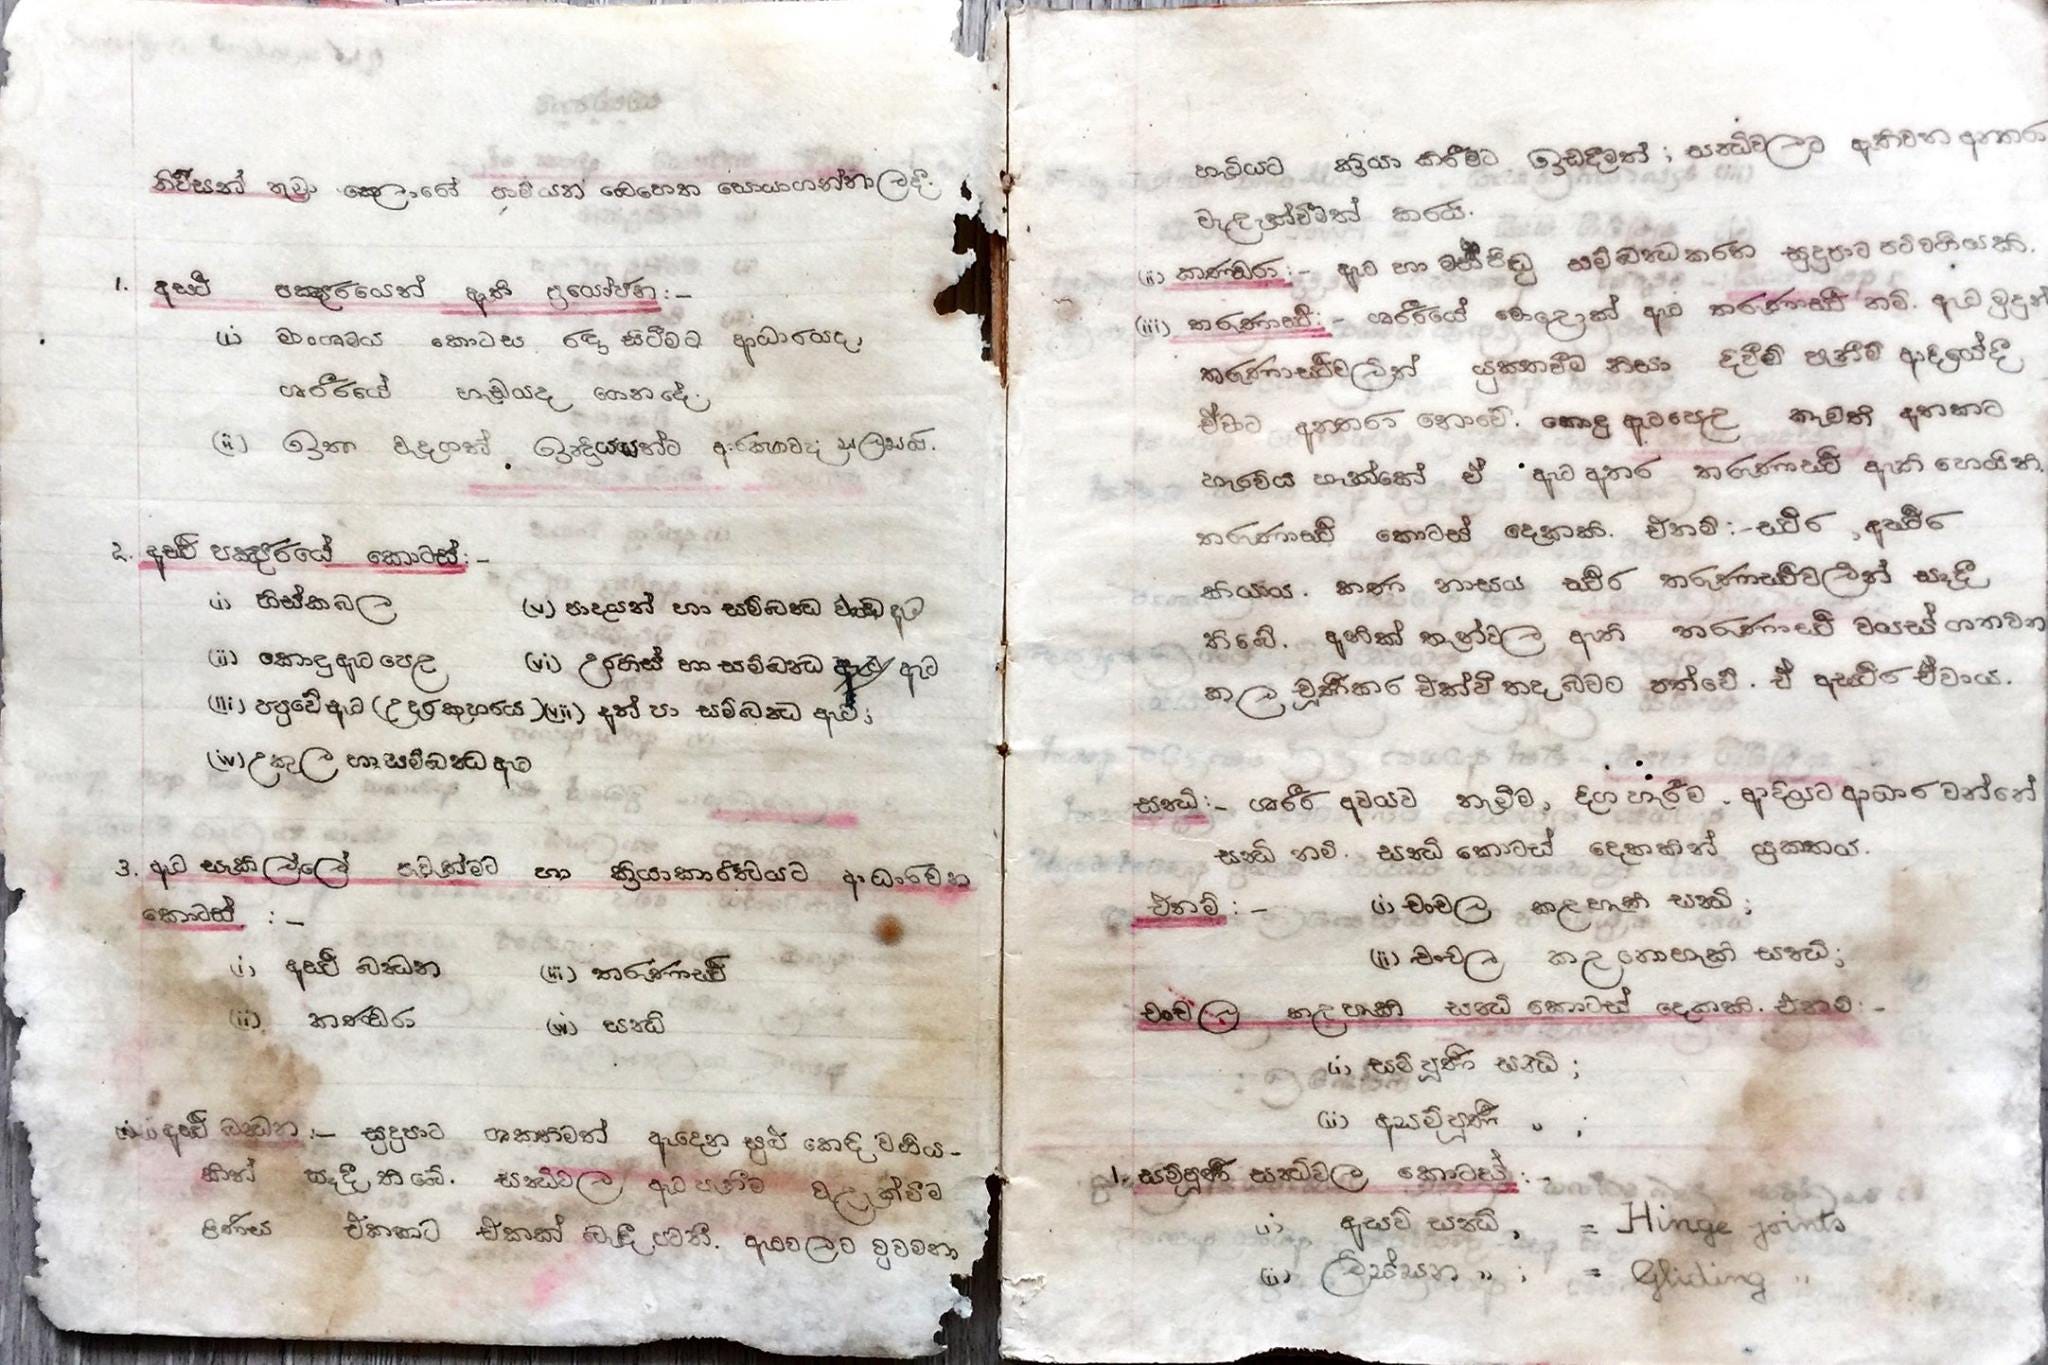 තුමා ක්ලොරෝ පාමියන් බෙහෙත සොයාගන්නාලදී.
1. අස්ථි පඤ්ජරයෙන් ඇති ප්‍රයෝජන :-
(i) මාංශමය කොටස රඳා සිටීමට ආධාරයද,
ශරීරයේ හැඩයද ගෙන දේ.
(ii) ඉතා වැදගත් ඉන්ද්‍රියයන්ට ආරක්ෂාවද සලසයි.
2. අස්ථි පඤ්ජරයේ කොටස් :-
(i) හිස්කබල (v) පාදයන් හා සම්බන්ධ ඇට
(ii) කොඳු ඇට පෙළ (vi) උරහිස් හා සම්බන්ධ ඇට
(iii) පපුවේ ඇට (උදරකුහරය) (vii) අත් පා සම්බන්ධ ඇට;
(iv) උකුල හා සම්බන්ධ ඇට
3. ඇට සැකිල්ලේ පැවැත්මට හා ක්‍රියාකාරිත්වයට ආධාරවෙන
කොටස් :-
(i) අස්ථි බන්ධන (iii) තරුණාස්ථි
(ii) කණ්ඩරා (iv) සන්ධි
(i) අස්ථි බන්ධන :- සුදුපාට ශක්තිමත් ඇදෙන සුළු කෙඳි වර්ගිය-
කින් සෑදී තිබේ. සන්ධිවල ඇට පැනීම වැළැක්වීම
පිණිස ඒකකට ඒකක් බැඳී පවතී. ඇටවලට වුවමනා
හැටියට ක්‍රියා කිරීමට ඉඩදීමත්; සන්ධිවලට ඇතිවන අන්තරා
වැළැක්වීමත් කරයි.
(ii) කණ්ඩරා :- ඇට හා සම්බන්ධ කරන සුදුපාට පටි වර්ගයෙකි.
(iii) තරුණාස්ථි :- ශරීරයේ මොළොක් ඇට තරුණාස්ථි නම්. ඇට මුදුන්
තරුණාස්ථිවලින් යුක්තවීම නිසා දිවීම් පැනීම් ආදියේදී
ඒවාට අන්තරා නොවේ. කොඳු ඇටපෙළ කැමති අතකට
හැරවිය හැක්කේ ඒ ඇට අතර තරුණාස්ථි ඇති හෙයිනි.
තරුණාස්ථි කොටස් දෙකකි. ඒනම් :- ස්ථිර, අස්ථිර
කියාය. කණ නාසය ස්ථිර තරුණාස්ථිවලින් සෑදී
තිබේ. අනික් තැන්වල ඇති තරුණාස්ථි වයස් ගතවන
කල චූර්ණිකර ඒක්වී තද බවට පත්වේ. ඒ අස්ථිර ඒවාය.
සන්ධි :- ශරීර අවයව නැමීම, දිග හැරීම, ආදියට ආධාර වන්නේ
සන්ධි නම්. සන්ධි කොටස් දෙකකින් යුක්තය.
ඒනම් :- (i) චංචල කළ හැකි සන්ධි;
(ii) චංචල කළ නොහැකි සන්ධි;
චංචල කළ හැකි සන්ධි කොටස් දෙකකි. ඒනම් :-
(i) සම්පූර්ණ සන්ධි ;
(ii) අසම්පූර්ණ " ;
1. සම්පූර්ණ සන්ධිවල කොටස් :-
(i) අසව් සන්ධි, = Hinge joints
(ii) ලිස්සන " ; = Gliding "